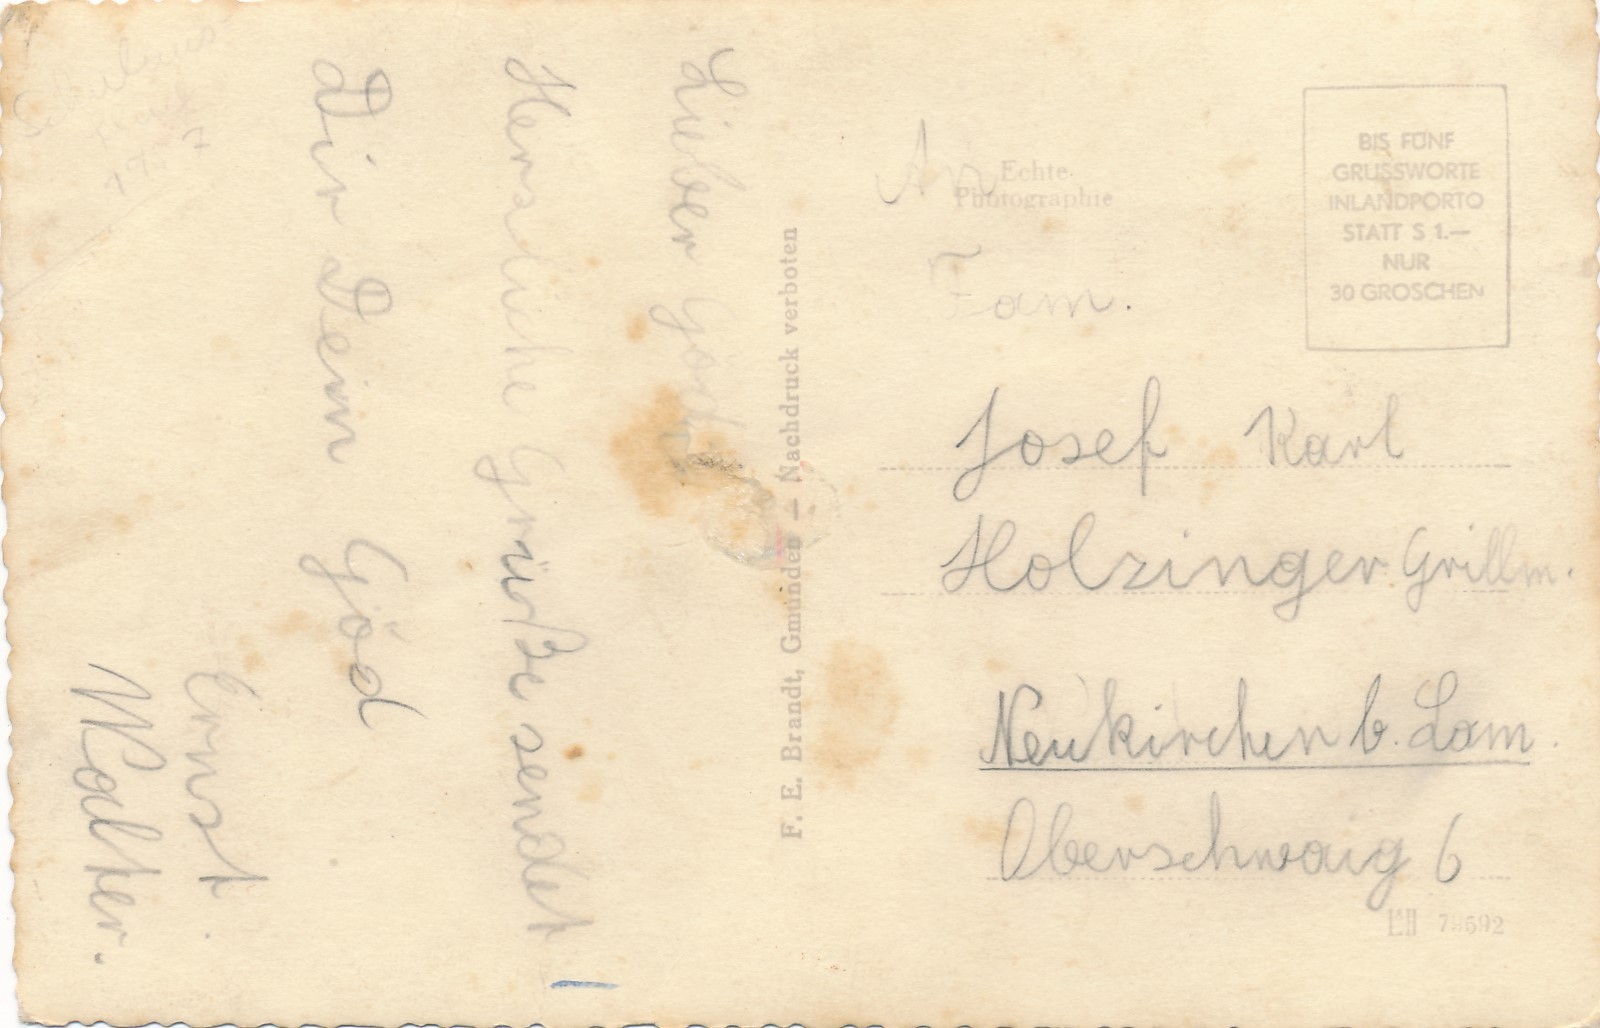 Lieber Göd
Herzliche Grüße sendet
Dir Dein Göd
Ernst
Walter.
F. E. Brandt, Gmunden — Nachdruck verboten
Echte
Photographie
An
Fam.
Josef Karl
Holzinger Grillm.
Neukirchen b. Lam.
Oberschwaig 6
BIS FÜNF
GRUSSWORTE
INLANDPORTO
STATT S 1.—
NUR
30 GROSCHEN
79692